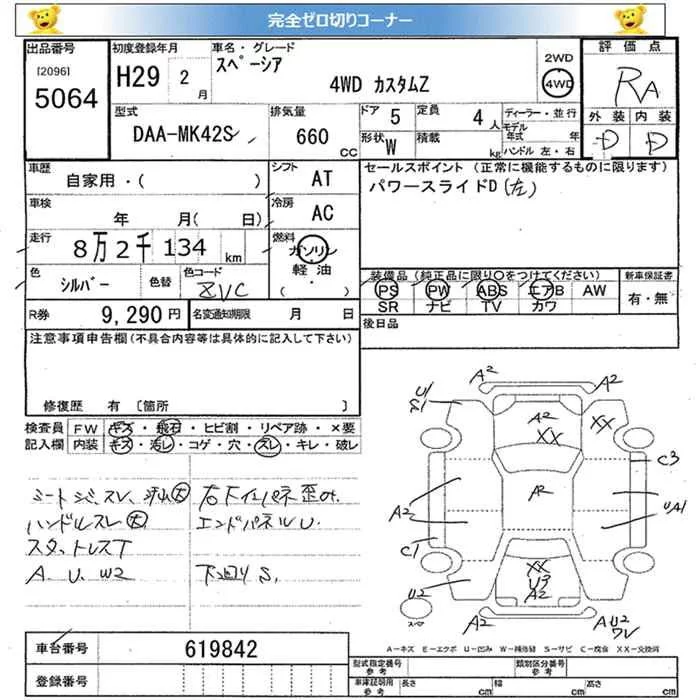 完全ゼロ切りコーナー
出品番号 初度登録年月 車名・グレード 評価点
[2096] 5064 H29 2月 スペーシア 4WD カスタムZ 2WD 4WD RA
外装 内装
D D
型式 排気量 ドア 5 定員 4人 ディーラー・並行
DAA-MK42S 660cc モデル年式 年
形状 W 積載 kg ハンドル 左・右
車歴 自家用・( ) シフト AT セールスポイント (正常に機能するものに限ります)
パワースライドD(左)
車検 年 月( 日) 冷房 AC
走行 8万2千134km 燃料 ガソリン
軽油
( ・ )
色 シルバー 色替 色コード ZVC
装備品 (純正品に限り〇をつけてください) 新車保証書
PS PW ABS エアB AW 有・無
SR ナビ TV カワ
R券 9,290円 名変通知期限 月 日 後日品
注意事項申告欄(不具合内容等は具体的に記入して下さい)
修復歴 有 [箇所 ]
検査員記入欄 FW キズ・飛石・ヒビ割・リペア跡・×要
内装 キズ・汚レ・コゲ・穴・スレ・キレ・破レ
シートシミ、スレ、汚レ大
ハンドルスレ大
スタットレスT
A、U、W2
右下インパネ歪み、
エンドパネルU、
下回りS、
A2
U1
S1
A2
XX
XX
C3
A2
A2
UA1
C1
XX
U3
A2
U2
スペア
A2
AU2
WV
A-キズ E-エクボ U-凹み W-補修跡 S-サビ C-腐食 XX-交換済
車台番号 619842
登録番号
型式指定番号 参考 類別区分番号 参考
車庫証明用 参考 長さ cm 幅 cm 高さ cm